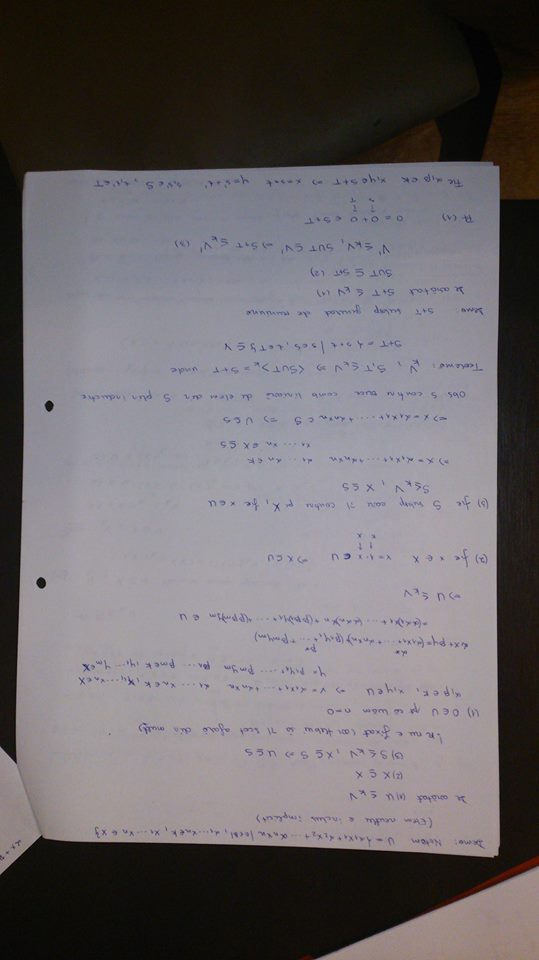 Demo: Notăm U = {α₁x₁+α₂x₂+... αnxn | n∈ℕ, α₁,...αn∈K, x₁...xn∈X}
(Elem neutru e inclus implicit)
De arătat (1) U ≤K V
(2) X ⊆ X
(3) S ≤K V, X ⊆ S ⇒ U ⊆ S
nu e fixat
(1) 0∈U pt că luăm n=0
α,β∈K, x,y∈U ⇒ x = α₁x₁+...+αnxn α₁...αn∈K, x₁,...xn∈X
y = β₁y₁+... βmym β₁...βm∈K y₁,...ym∈X
αx+βy = α(α₁x₁+...+αnxn)+β(β₁y₁+...+βmym)
= (αα₁)x₁+...(ααn)xn+(ββ₁)y₁+...+(ββm)ym ∈ U
⇒ U ≤K V
(2) fie x∈X x = 1·x ∈ U ⇒ X⊆U
(3) fie S subsp care îl conține pe X, fie x∈U
S ≤K V, X ⊆ S
⇒ x = α₁x₁+...+αnxn α₁...αn∈K
x₁...xn ∈ X ⊆ S
⇒ x = α₁x₁+...+αnxn ∈ S ⇒ U ⊆ S
Obs S conține orice comb liniară de elem din S prin inducție
Teorema: KV, S,T ≤K V ⇒ <S∪T>K = S+T unde
S+T = {s+t | s∈S, t∈T} ⊆ V
Demo: S+T subsp generat de reuniune
De arătat S+T ≤K V (1)
S∪T ⊆ S+T (2)
V' ≤K V, S∪T ⊆ V' ⇒ S+T ⊆ V' (3)
(1) 0 = 0+0 ∈ S+T
Fie α,β∈K x,y∈S+T ⇒ x=s+t y=s'+t', s,s'∈S, t,t'∈T